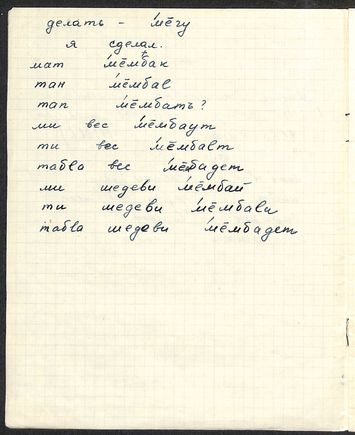 делать – ме̄гу
я сделал.
мат ме̄мбак
тан ме̄мбал
тап ме̄мбать?
ми вес ме̄мбаут
ти вес ме̄мбалт
табла вес ме̄мбадет
ми шедеви ме̄мбай
ти шедеви ме̄мбали
табла шедеви ме̄мбадет